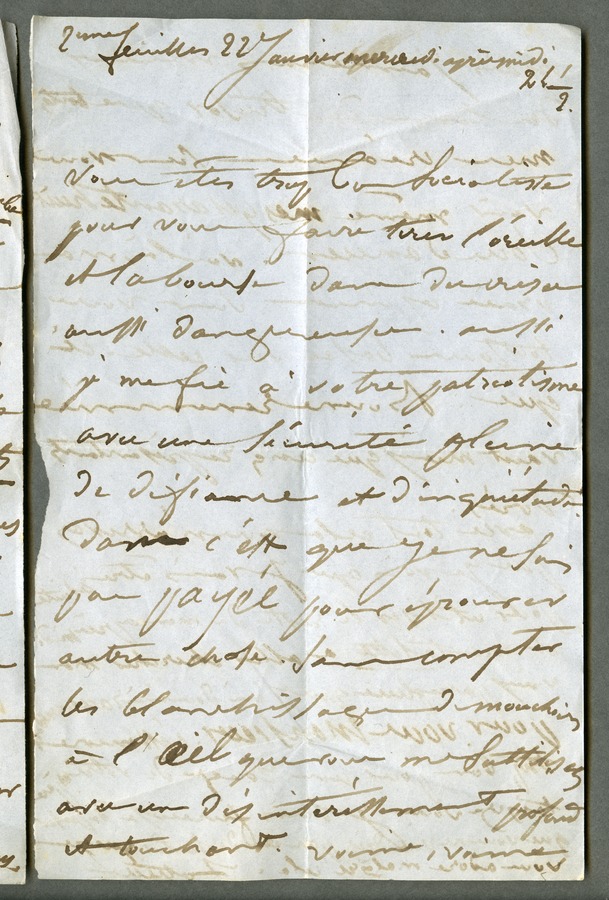 2ème feuilles 22 Janvier mercredi après midi
2h 1/2.
vous etes trop bon Socialiste
pour vous faire tirer l'oreille
et la bourse dans
aussi dangereuse. aussi
je me fie à votre patriotisme
avec une sécurité pleine
de défiance et d'inquiétude.
Dam c'est que je ne suis
pas payée pour éprouver
autre chose. sans compter
les blanchissages de mouchoirs
à l'Œil que vous me
avec un désintéressement profond
et touchant. voime, voime